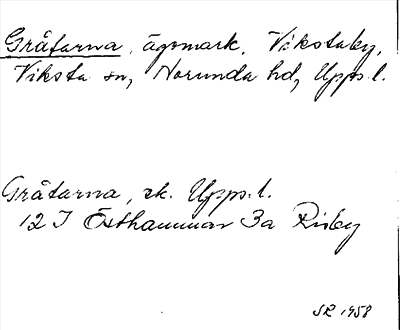 Gråtarna, ägomark, Vikstaby,
Viksta sn, Norunda hd, Upps. l.
Gråtarna, ek. Upps. l.
12 I Östhammar 3a Risby
SR 1958